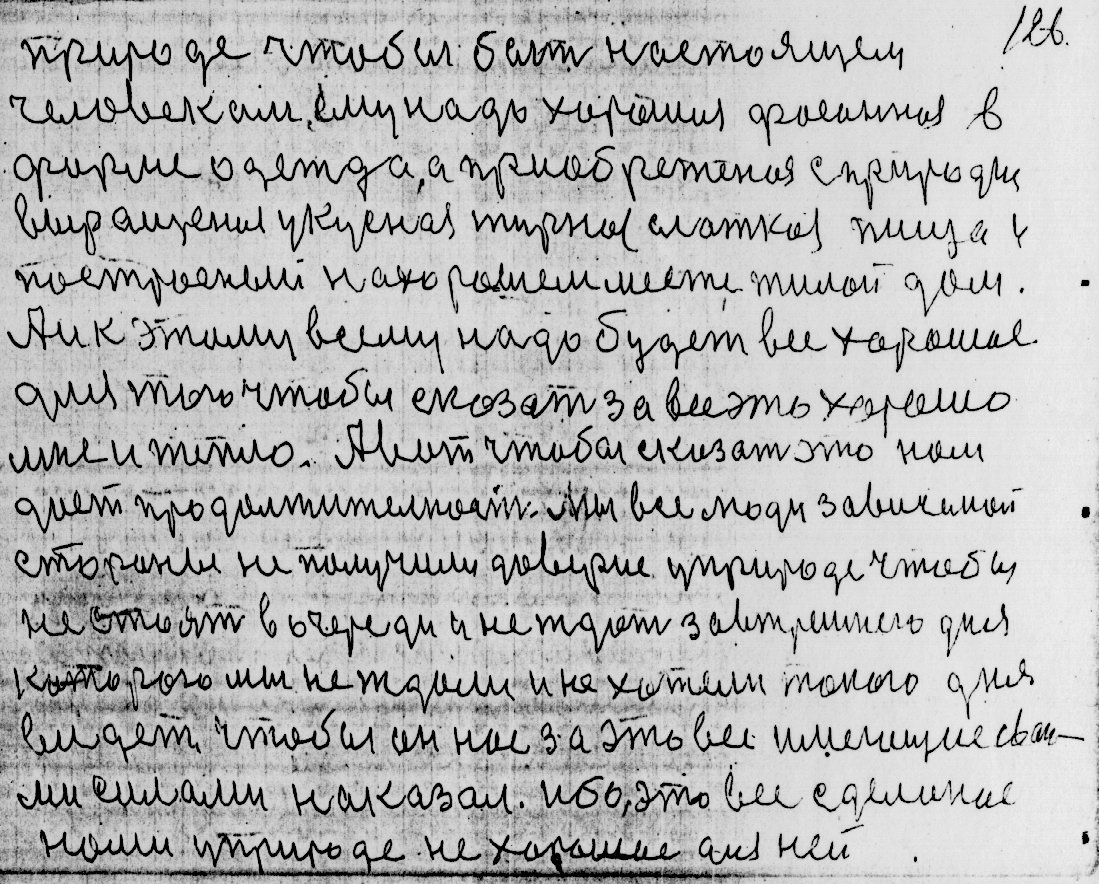 126.
природе чтобы бытт настоящем
человекам, ему надо хорошая фасонная в
форме одежда, а приобретеная с природы
выращеная укусная жирная слаткая пища и
построеный на хорошем месте жилой дом.
А и к этому всему надо будет все хорошае
для того чтобы сказат за все это хорошо
мне и тепло. А вот чтобы сказат это нам
дает продолжителность. Мы все люди зависимой
стораны не получили доверие у природе чтобы
не стоят в очереди и не ждат завтрешнего дня
которого мы не ждали и не хотели такого дня
видет, чтобы он нас за это все имеющие сваи-
ми силами наказал. ибо, это все сделаное
нами у природе не хорошае для ней.